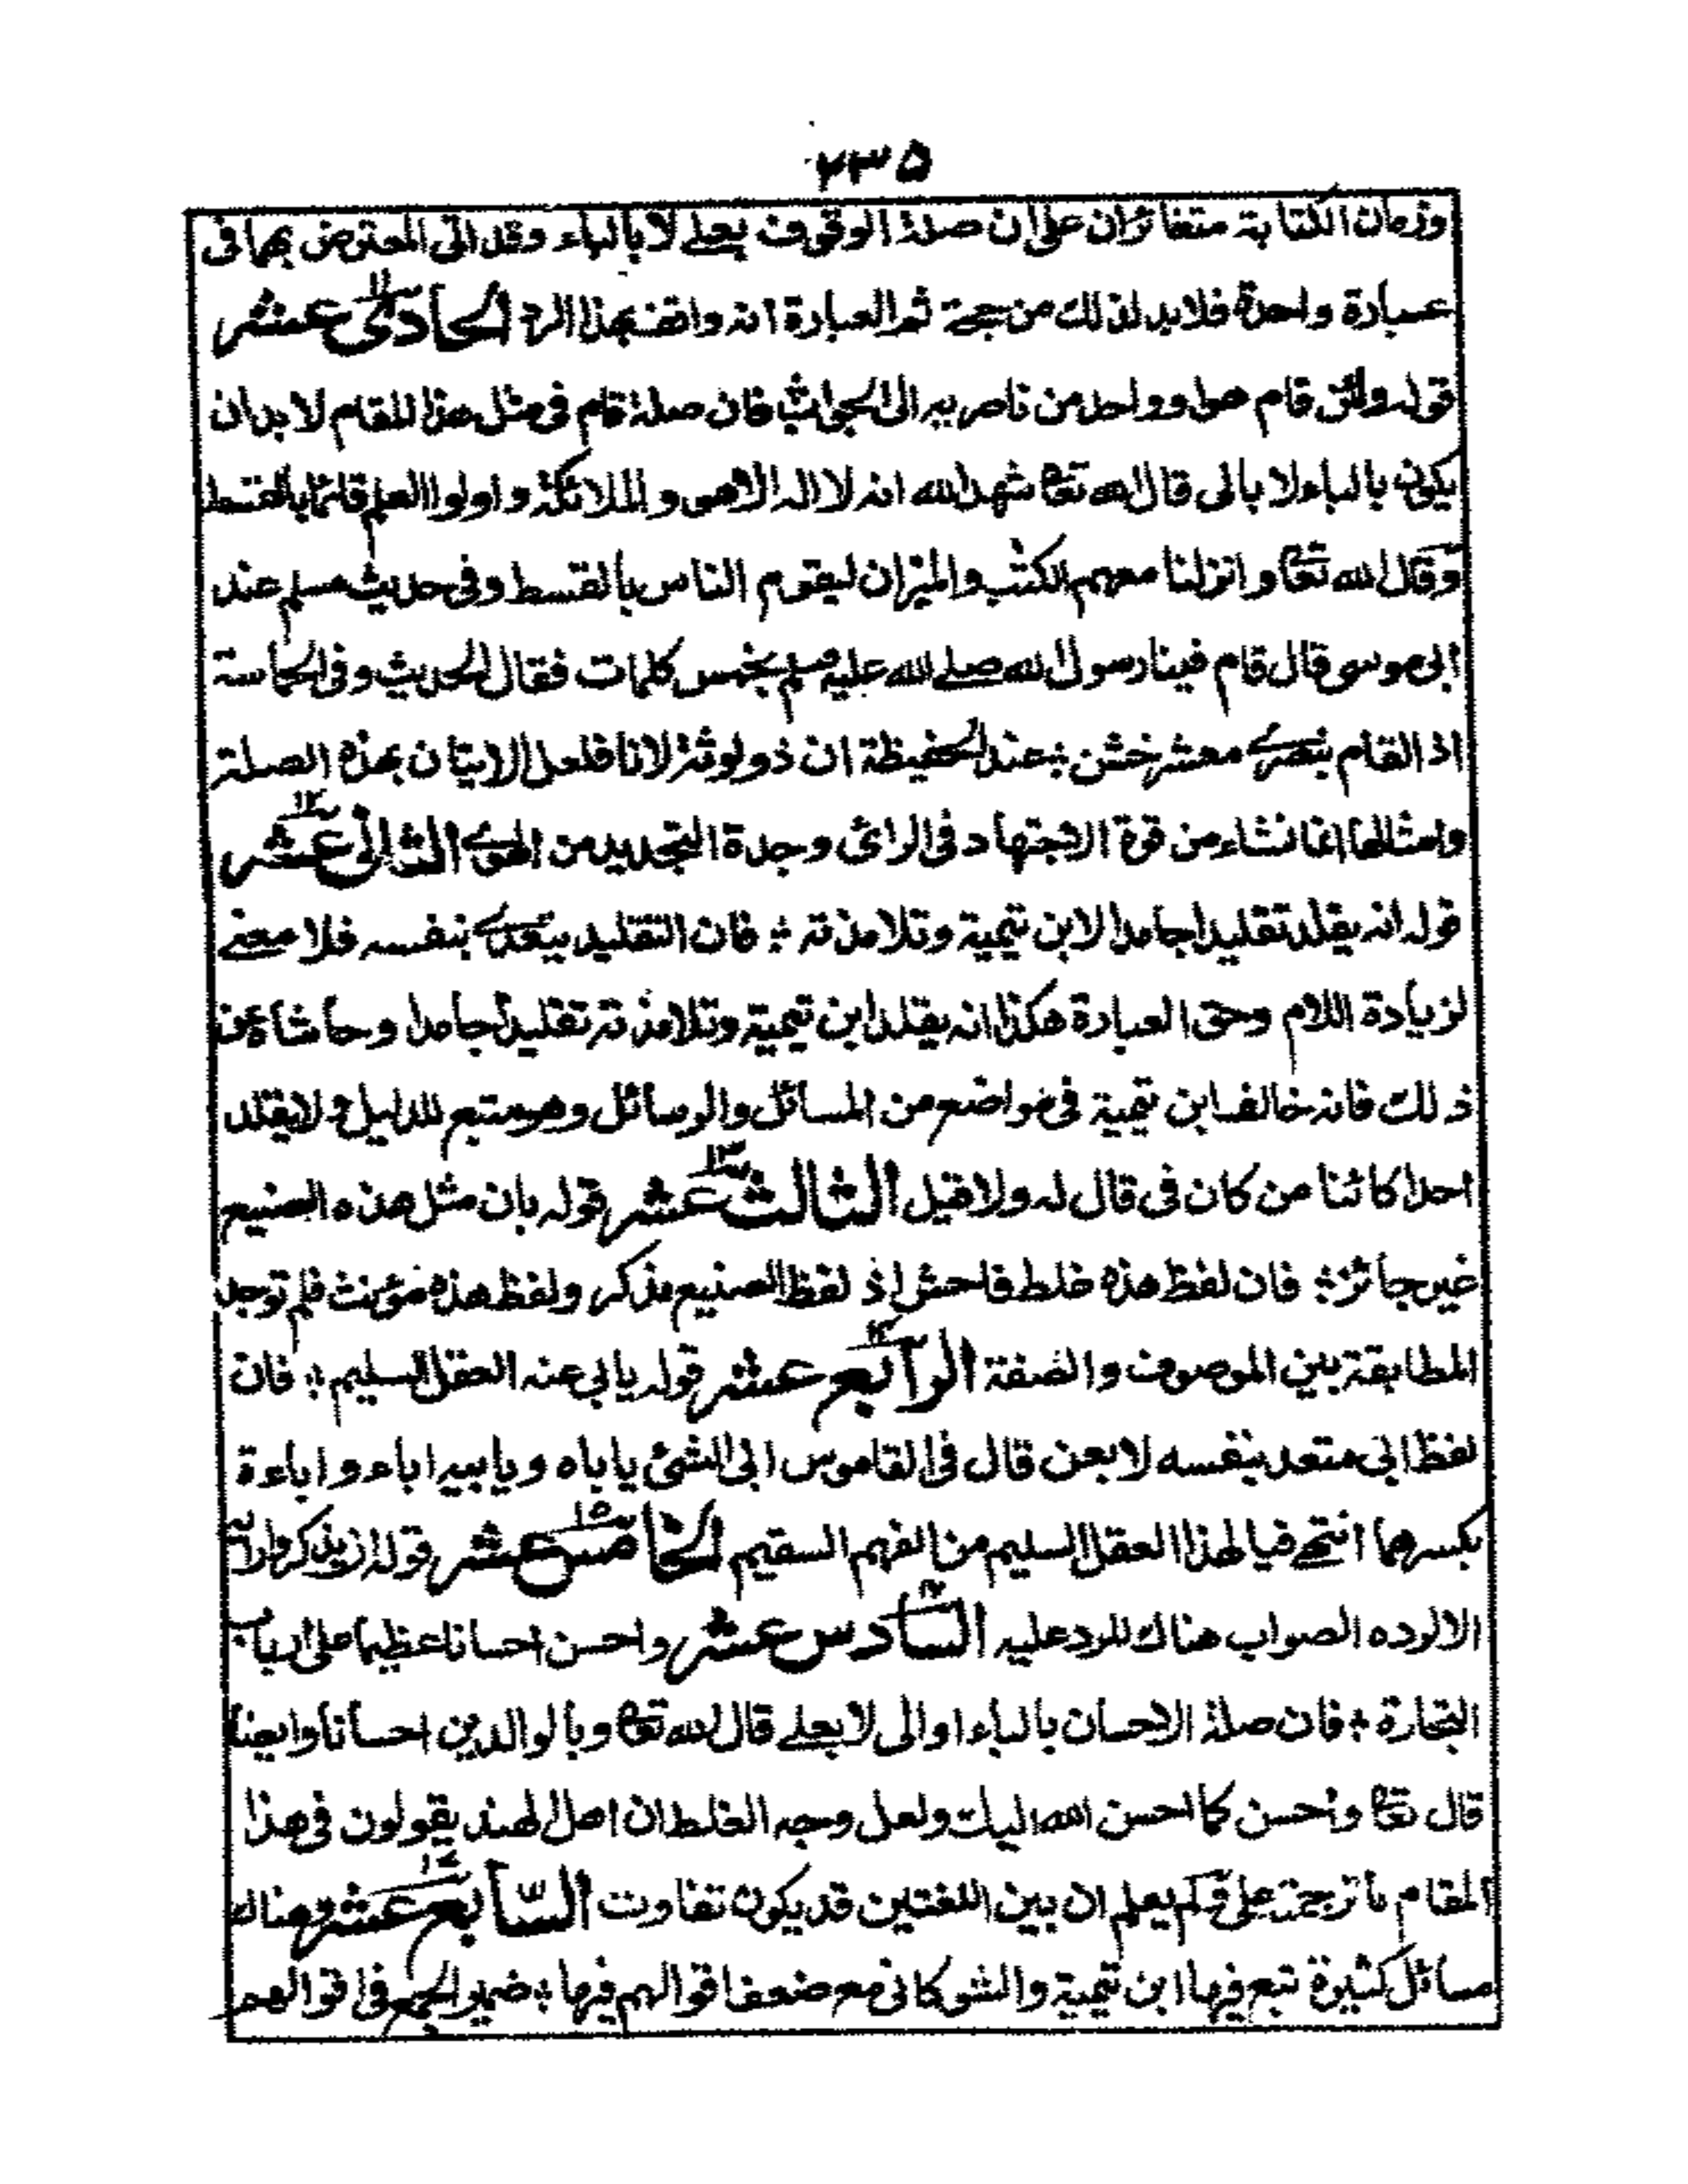 ٢٣٥
وزمان الكتابة متغائران على ان صلة الوقوف بعلى لا بالباء وقد اتى المعترض بهما فى
عبارة واحدة فلا بد لذلك من حجة ثم العبارة انه واقف بهذا الرد الحادى عشر ١١
قوله ولئن قام هو او واحد من ناصريه الى الجواب فان صلة قام فى مثل هذا المقام لا بد ان
يكون بالباء لا بالى قال الله تعالى شهد الله انه لا اله الا هو والملائكة واولوا العلم قائما بالقسط
وقال الله تعالى وانزلنا معهم الكتب والميزان ليقوم الناس بالقسط وفى حديث مسلم عند
ابى موسى قال قام فينا رسول الله صلے الله عليه وسلم بخمس كلمات فقال الحديث وفى الحماسة
اذ القام بنصرے معشر خشن ؛ عند الحفيظة ان ذو لوثة لانا فلعل الاتيان بهذه الصلة
وامثالها انما نشاء من قوة الاجتهاد فى الرائى وجدة التجديد من الهوے الثانى عشر ١٢
قوله انه يقلد تقليدا جامدا لابن تيمية وتلامذته ؛ فان التقليد يتعدے بنفسه فلا معنے
لزيادة اللام وحق العبارة هكذا انه يقلد ابن تيمية وتلامذته تقليدا جامدا وحاشاه عن
ذلك فانه خالف ابن تيمية فى مواضع من المسائل والرسائل وهو متبع للدليل ولا يقلد
احدا كائنا من كان فى قال له ولا قيل الثالث عشر ١٣ قوله بان مثل هذه الصنيع
غير جائز ؛ فان لفظ هذه غلط فاحش اذ لفظ الصنيع مذكر ولفظ هذه مؤنث فلم توجد
المطابقة بين الموصوف والصفة الرابع عشر ١٤ قوله يابى عنه العقل السليم ؛ فان
لفظ ابى متعد بنفسه لا بعن قال فى القاموس ابى الشئ ياباه ويابيه اباء واباءة
بكسرهما انتهے فيا لهذا العقل السليم من الفهم السقيم الخامس عشر ١٥ قوله
الا لوده الصواب هناك للرد عليه السادس عشر ١٦ واحسن احسانا عظيما على ارباب
التجارة ؛ فان صلة الاحسان بالباء او الى لا بعلے قال الله تعالى وبالوالدين احسانا وايضا
قال تعالى واحسن كما احسن الله اليك ولعل وجه الغلط ان اهل الهند يقولون فى هذا
المقام ما ترجمته على ولم يعلم ان بين اللغتين قد يكون تفاوت السابع عشر ١٧ وهناك
مسائل كثيرة تبع فيها ابن تيمية والشوكانى مع ضعف اقوالهم فيها ؛ ضمير الجمع فى اقوالهم